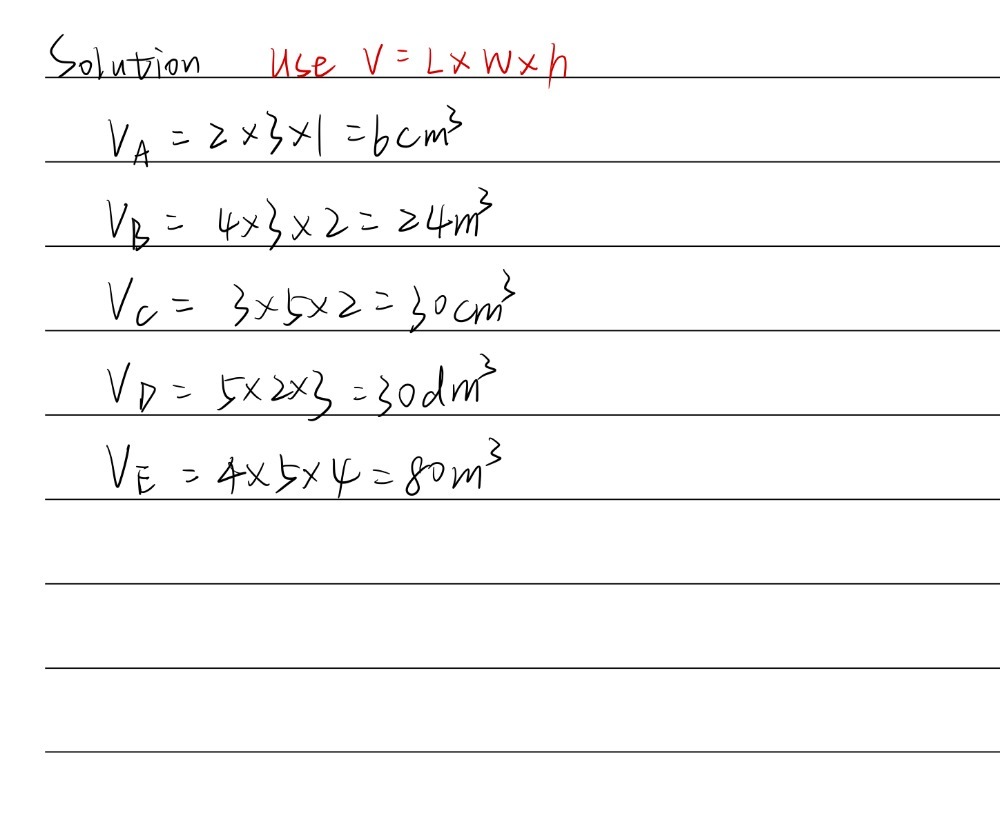 Solution Use V = L × W × h
V_A = 2 × 3 × 1 = 6cm³
V_B = 4 × 3 × 2 = 24m³
V_C = 3 × 5 × 2 = 30cm³
V_D = 5 × 2 × 3 = 30dm³
V_E = 4 × 5 × 4 = 80m³